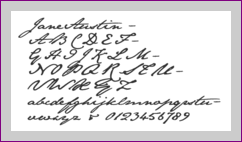 Jane Austin -
A B C D E F -
G H I J K L M -
N O P Q R S T U -
V W X Y Z
abcdefghijklmnopqrstu-
vwxyz & 0123456789